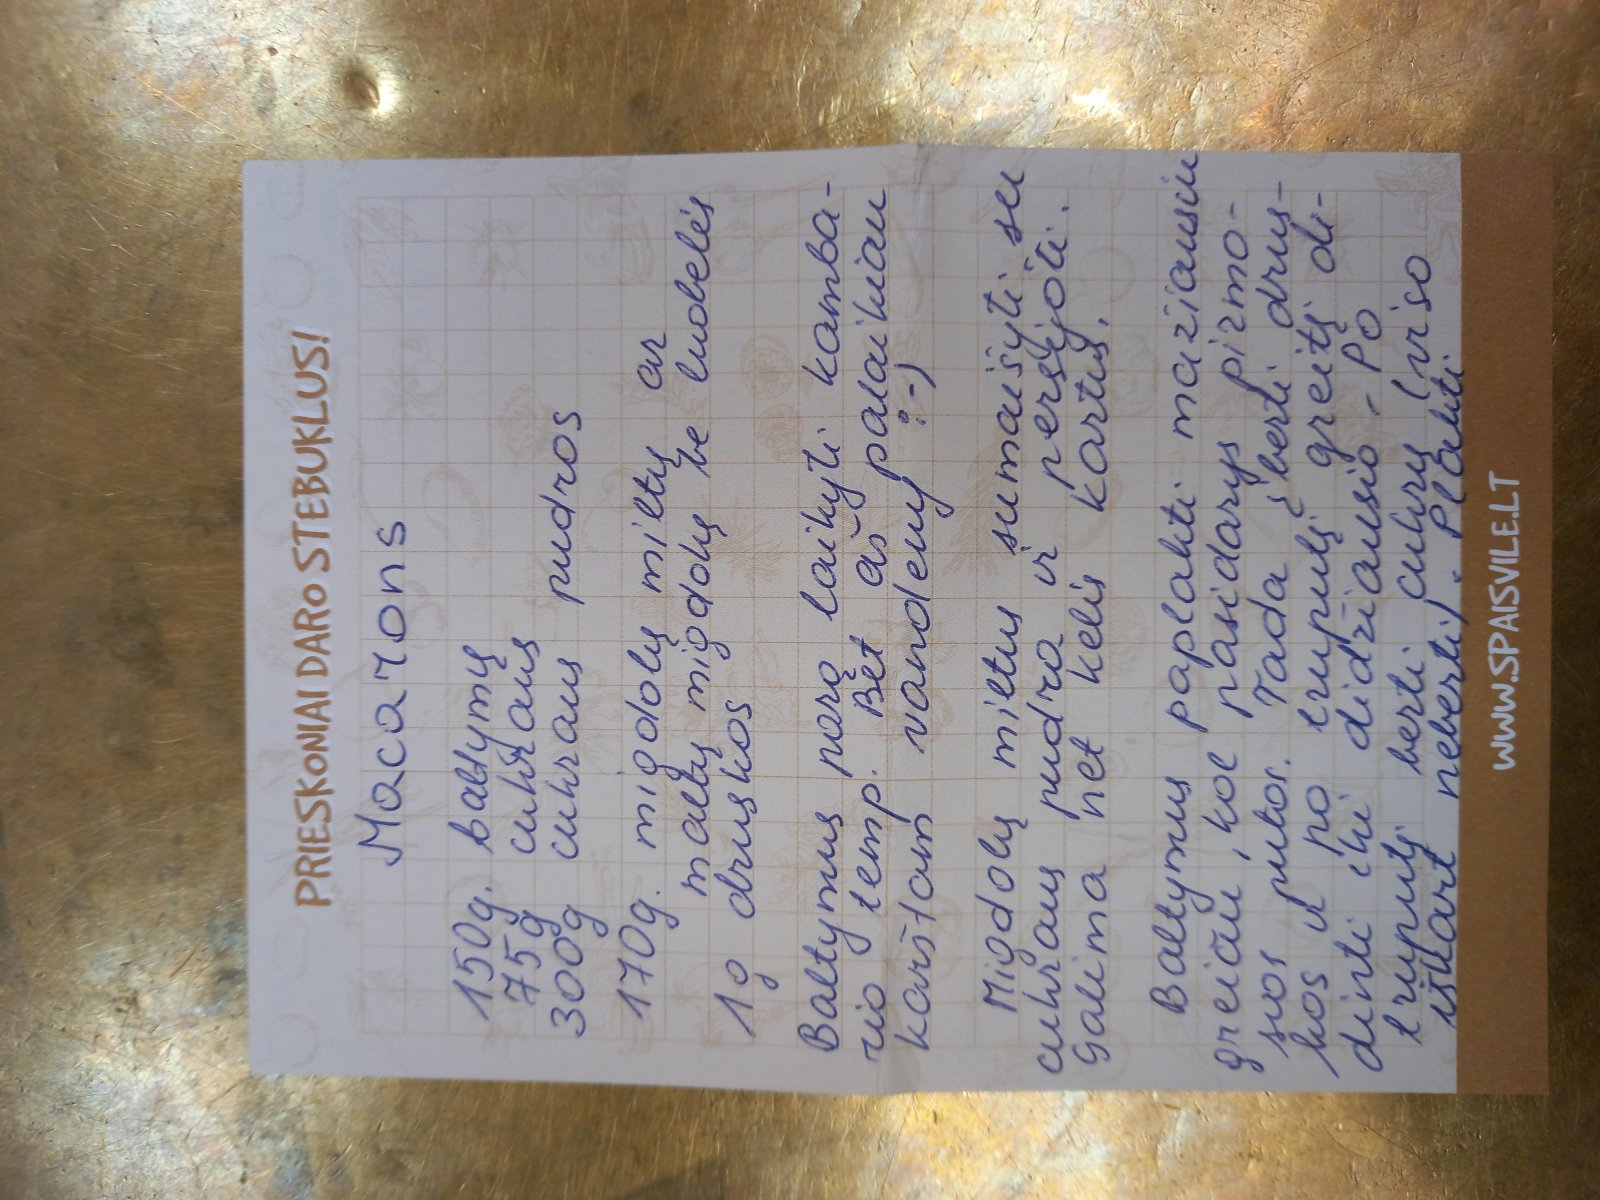 PRIESKONIAI DARO STEBUKLUS!
Macarons
150g. baltymų
75g cukraus
300g cukraus pudros
170g. migdolų miltų ar
maltų migdolų be luobelės
1g druskos
Baltymus parą laikyti kamba-
rio temp. Bet aš palaikiau
karštam vandeny :-)
Migdolų miltus sumaišyti su
cukraus pudra ir persijoti.
Galima net kelis kartus.
Baltymus paplakti mažiausiu
greičiu, kol pasidarys pirmo-
sios putos. Tada įberti drus-
kos ir po truputį greitį di-
dinti iki didžiausio. Po
truputį berti cukrų (viso
iškart neberti). Plakti
WWW.SPAISVILE.LT